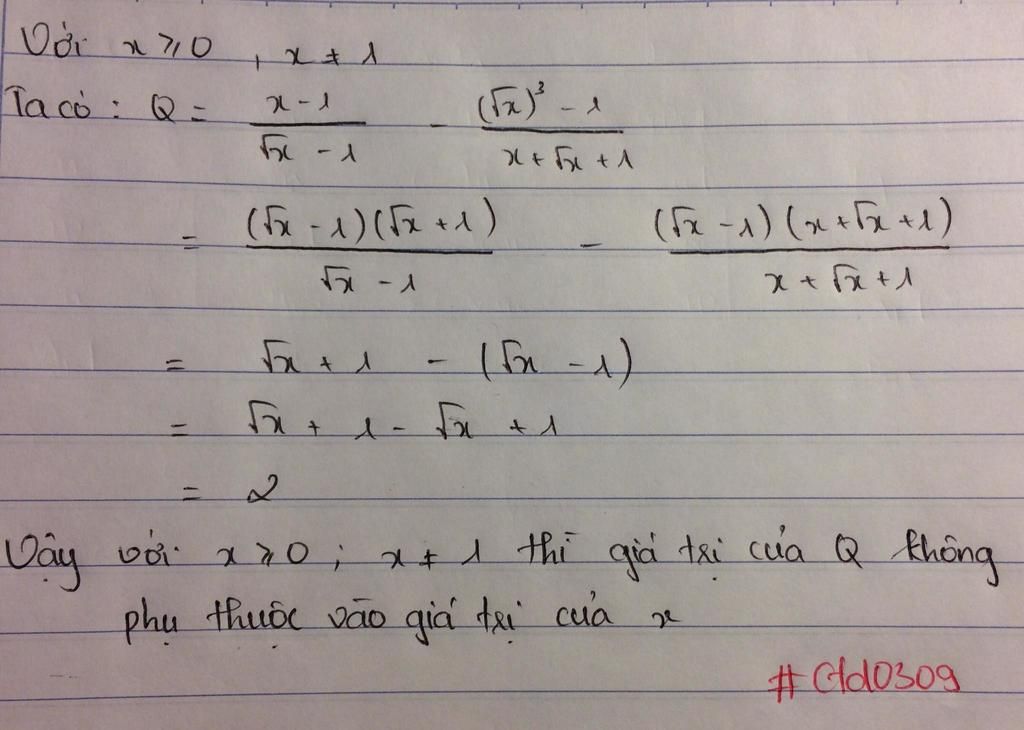 Với x ≥ 0 , x ≠ 1
Ta có : Q = (x - 1)/(√x - 1) - ((√x)³ - 1)/(x + √x + 1)
= ((√x - 1)(√x + 1))/(√x - 1) - ((√x - 1)(x + √x + 1))/(x + √x + 1)
= √x + 1 - (√x - 1)
= √x + 1 - √x + 1
= 2
Vậy với x ≥ 0 ; x ≠ 1 thì giá trị của Q không
phụ thuộc vào giá trị của x